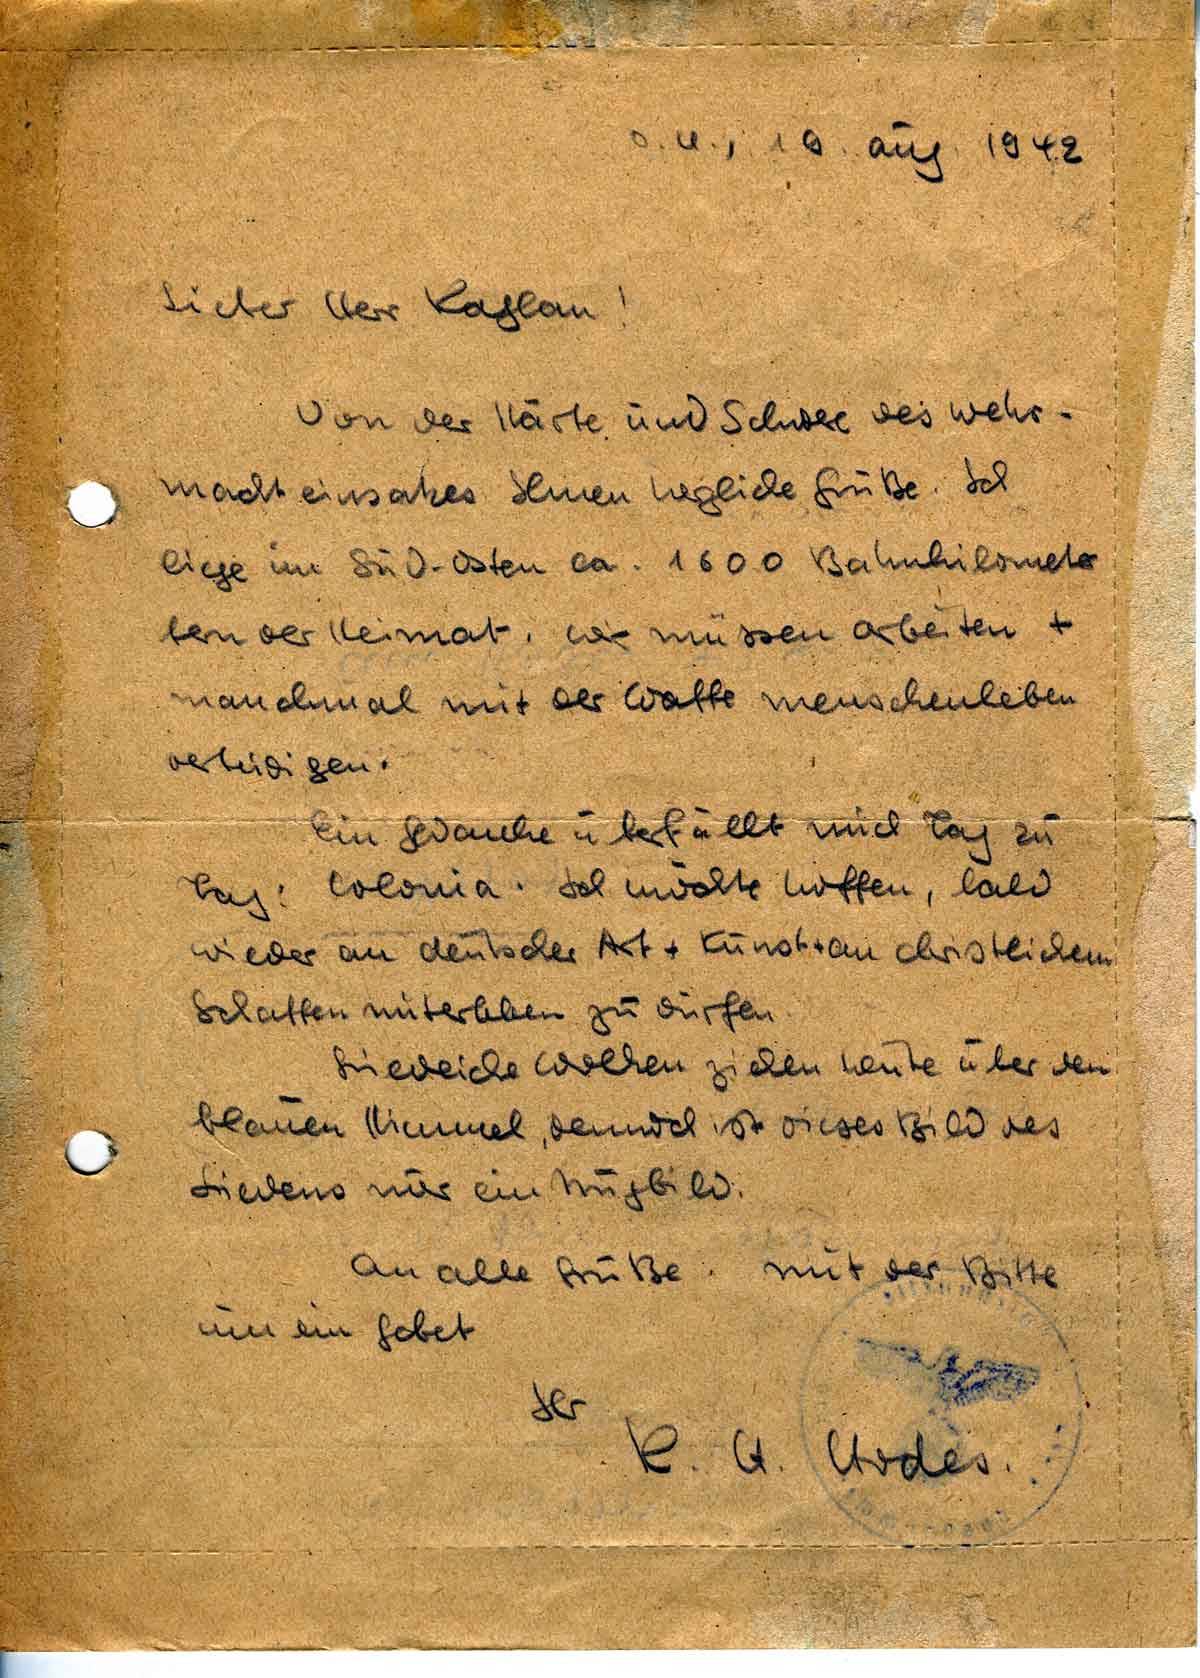 O.U., 19. Aug. 1942
Lieber Herr Kaplan!
Von der Härte und Schwere des Wehr-
machteinsatzes Ihnen herzliche Grüße. Ich
liege im Süd-Osten ca. 1600 Bahnkilometer
fern der Heimat. Wir müssen arbeiten +
manchmal mit der Waffe Menschenleben
verteidigen.
Ein Gedanke überfällt mich Tag zu
Tag: Colonia. Ich möchte hoffen, bald
wieder an deutscher Art + Kunst + an christlichem
Schaffen miterleben zu dürfen.
Friedliche Wolken ziehen heute über den
blauen Himmel, dennoch ist dieses Bild des
Friedens nur ein Trugbild.
An alle Grüße. Mit der Bitte
um ein Gebet
Ihr
K. H.